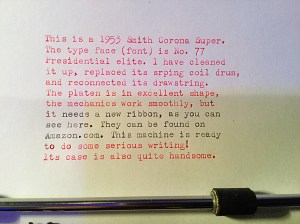 This is a 1953 Smith Corona Super.
The type face (font) is No. 77
Presidential elite. I have cleaned
it up, replaced its srping coil drum,
and reconnected its drawstring.
The platen is in excellent shape,
the mechanics work smoothly, but
it needs a new ribbon, as you can
see here. They can be found on
Amazon.com. This machine is ready
to do some serious writing!
Its case is also quite handsome.